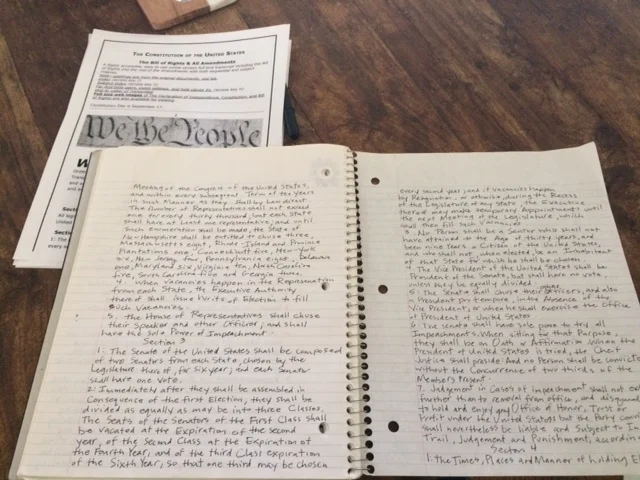 THE CONSTITUTION OF THE UNITED STATES
The Bill of Rights & All Amendments
We the People
Meeting of the Congress of the United States,
and within every subsequent Term of ten Years
in such Manner as they shall by law direct.
The Number of Representatives shall not exceed
one for every thirty thousand, but each State
shall have at Least one representative; and until
such enumeration shall be made, the State of
New Hampshire shall be entitled to chuse three,
Massachusetts eight, Rhode Island and Province
Plantations one, Connecticut five, New-York
six, New Jersey four, Pennsylvania eight, Delaware
one, Maryland six, Virginia ten, North Carolina
five, South Carolina five and Georgia three.
4. When vacancies happen in the Representation
from each State, the Executive Authority
thereof shall issue Writs of Election to fill
such Vacancies.
5. the House of Representatives shall chuse
their Speaker and other Officers; and shall
have the sole Power of Impeachment.
Section 3
1: The Senate of the United States shall be composed
of two Senators from each State, chosen by the
Legislature thereof, for six year; and each Senator
shall have one Vote.
2: Immediately after they shall be assembled in
Consequence of the first Election, they shall be
divided as equally as may be into three Classes.
The Seats of the Senators of the First Class shall
be Vacated at the Expiration of the second
year, of the Second Class at the Expiration of
the Fourth Year, and of the third Class expiration
of the Sixth Year, so that one third may be chosen
every second year, and if vacancies happen
by Resignation, or otherwise, during the Recess
of the Legislature of any State, the Executive
thereof may make temporary Appointments until
the next Meeting of the Legislature, which
shall then fill such Vacancies.
3. No Person shall be a Senator who shall not
have attained to the Age of thirty years, and
been nine Years a Citizen of the United States,
and who shall not, when elected, be an Inhabitant
of that State for which he shall be chosen
4 The Vice President of the United States shall be
President of the Senate, but shall have no vote,
unless they be equally divided
5 The Senate shall chuse their Officers, and also
a President pro tempore, in the Absence of the
Vice President, or when he shall exercise the Office
of President of United States
6 The senate shall have sole power to try all
Impeachments. When sitting for that Purpose
they shall be on Oath or Affirmation. When the
President of United States is tried, the Chief
Justice shall preside: And no Person shall be Convicted
without the Concurrence of two thirds of the
Members Present
7. Judgement in Cases of impeachment shall not
further than to removal from office, and
to hold and enjoy any Office of honor, Trust or
Profit under the United States: but the Party
shall nevertheless be liable and Subject to In
Trail, Judgement and Punishment, according
Section 4
1: The Times, Places and Manner of holding